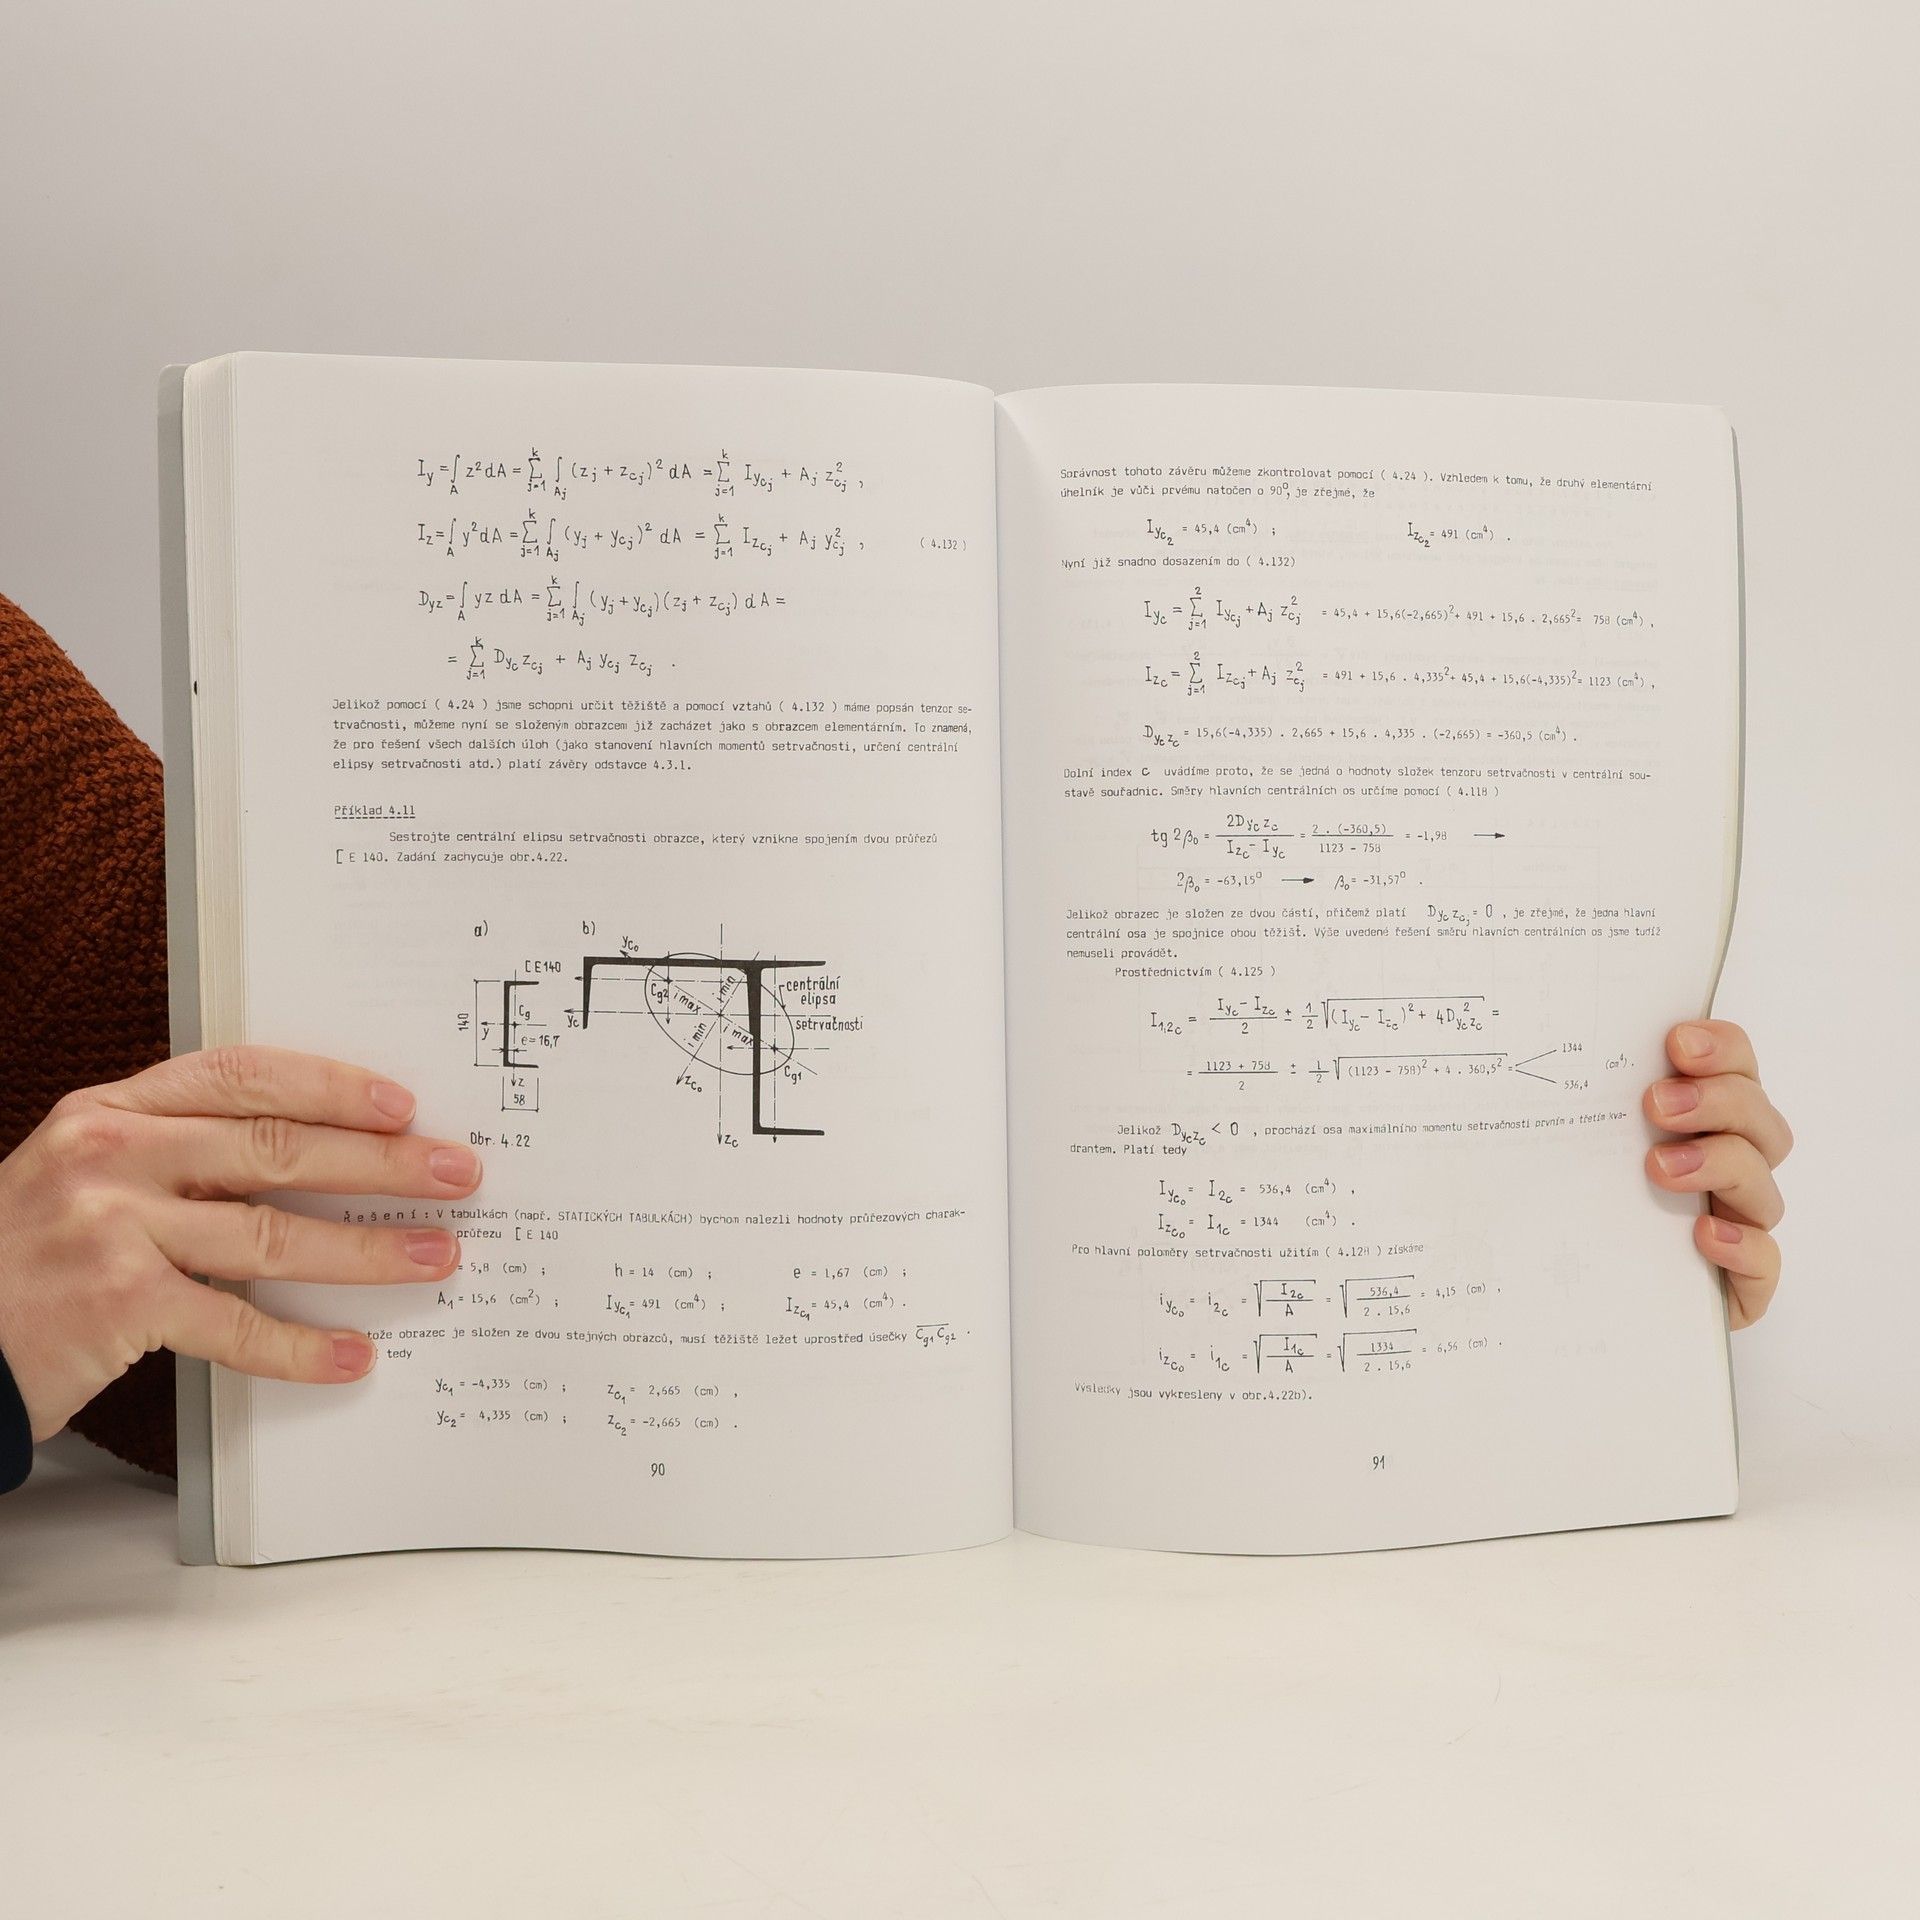 I_y = ∫_A z² dA = Σ_{j=1}^{k} ∫_{Aj} (z_j + z_{cj})² dA = Σ_{j=1}^{k} I_{ycj} + A_j z²_{cj} ,
I_z = ∫_A y² dA = Σ_{j=1}^{k} ∫_{Aj} (y_j + y_{cj})² dA = Σ_{j=1}^{k} I_{zcj} + A_j y²_{cj} , ( 4.132 )
D_{yz} = ∫_A yz dA = Σ_{j=1}^{k} ∫_{Aj} (y_j + y_{cj})(z_j + z_{cj}) dA =
= Σ_{j=1}^{k} D_{yc zcj} + A_j y_{cj} z_{cj} .
Jelikož pomocí ( 4.24 ) jsme schopni určit těžiště a pomocí vztahů ( 4.132 ) máme popsán tenzor se-
trvačnosti, můžeme nyní se složeným obrazcem již zacházet jako s obrazcem elementárním. To znamená,
že pro řešení všech dalších úloh (jako stanovení hlavních momentů setrvačnosti, určení centrální
elipsy setrvačnosti atd.) platí závěry odstavce 4.3.1.
Příklad 4.11
Sestrojte centrální elipsu setrvačnosti obrazce, který vznikne spojením dvou průřezů
[ E 140. Zadání zachycuje obr.4.22.
a)
[ E 140
140
y
C_g
e=16,7
z
58
b)
y_{c0}
y_c
C_{g2}
i max
i min
i min
i max
centrální
elipsa
setrvačnosti
C_{g1}
z_{c0}
z_c
Obr. 4.22
Řešení: V tabulkách (např. STATICKÝCH TABULKÁCH) bychom nalezli hodnoty průřezových charak-
průřezu [ E 140
= 5,8 (cm) ; h = 14 (cm) ; e = 1,67 (cm) ;
A_1 = 15,6 (cm²) ; I_{yc1} = 491 (cm⁴) ; I_{zc1} = 45,4 (cm⁴) .
tože obrazec je složen ze dvou stejných obrazců, musí těžiště ležet uprostřed úsečky C_{g1} C_{g2} .
tedy
y_{c1} = -4,335 (cm) ; z_{c1} = 2,665 (cm) ,
y_{c2} = 4,335 (cm) ; z_{c2} = -2,665 (cm) .
90
Správnost tohoto závěru můžeme zkontrolovat pomocí ( 4.24 ). Vzhledem k tomu, že druhý elementární
úhelník je vůči prvému natočen o 90°, je zřejmé, že
I_{yc2} = 45,4 (cm⁴) ; I_{zc2} = 491 (cm⁴) .
Nyní již snadno dosazením do ( 4.132)
I_{yc} = Σ_{j=1}^{2} I_{ycj} + A_j z²_{cj} = 45,4 + 15,6(-2,665)² + 491 + 15,6 . 2,665² = 758 (cm⁴) ,
I_{zc} = Σ_{j=1}^{2} I_{zcj} + A_j z²_{cj} = 491 + 15,6 . 4,335² + 45,4 + 15,6(-4,335)² = 1123 (cm⁴) ,
D_{yc zc} = 15,6(-4,335) . 2,665 + 15,6 . 4,335 . (-2,665) = -360,5 (cm⁴) .
Dolní index C uvádíme proto, že se jedná o hodnoty složek tenzoru setrvačnosti v centrální sou-
stavě souřadnic. Směry hlavních centrálních os určíme pomocí ( 4.118 )
tg 2β₀ = 2D_{yc zc} / (I_{zc} - I_{yc}) = 2 . (-360,5) / (1123 - 758) = -1,98 →
2β₀ = -63,15° → β₀ = -31,57° .
Jelikož obrazec je složen ze dvou částí, přičemž platí D_{yc zcj} = 0 , je zřejmé, že jedna hlavní
centrální osa je spojnice obou těžišť. Výše uvedené řešení směru hlavních centrálních os jsme tudíž
nemuseli provádět.
Prostřednictvím ( 4.125 )
I_{1,2c} = (I_{yc} - I_{zc}) / 2 ± 1/2 √((I_{yc} - I_{zc})² + 4D²_{yc zc}) =
= (1123 + 758) / 2 ± 1/2 √((1123 - 758)² + 4 . 360,5²) = 1344 536,4 (cm⁴) .
Jelikož D_{yc zc} < 0 , prochází osa maximálního momentu setrvačnosti prvním a třetím kva-
drantem. Platí tedy
I_{yc0} = I_{2c} = 536,4 (cm⁴) ,
I_{zc0} = I_{1c} = 1344 (cm⁴) .
Pro hlavní poloměry setrvačnosti užitím ( 4.128 ) získáme
i_{yc0} = i_{2c} = √(I_{2c} / A) = √(536,4 / (2 . 15,6)) = 4,15 (cm) ,
i_{zc0} = i_{1c} = √(I_{1c} / A) = √(1334 / (2 . 15,6)) = 6,56 (cm) .
Výsledky jsou vykresleny v obr.4.22b).
91